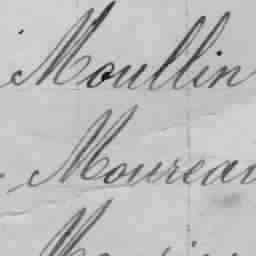 Moullin
Moureau